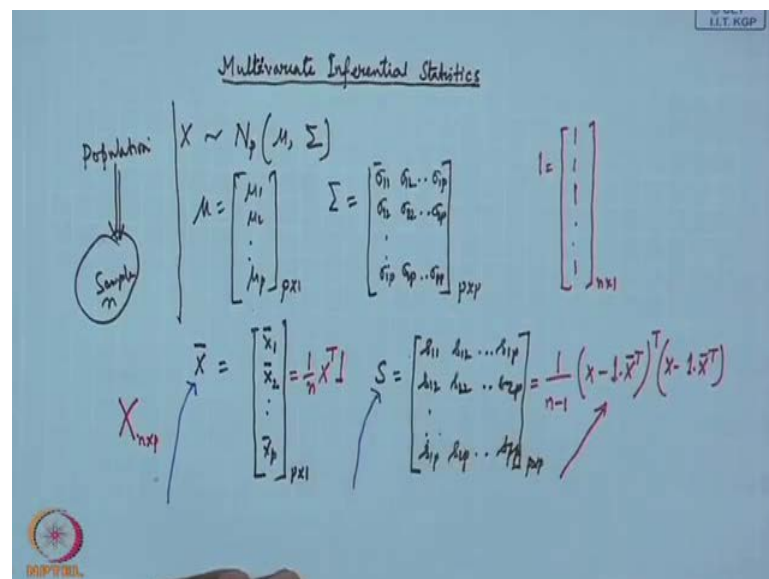 © CET
I.I.T. KGP
Multivariate Inferential Statistics
Population
Sample
n
X ~ N_p (μ, Σ)
μ = [μ1 μ2 . μp] p×1
Σ = [σ11 σ12 .. σ1p σ12 σ22 .. σ2p . σ1p σ2p .. σpp] p×p
1 = [1 1 1 . . 1] n×1
X n×p
X̄ = [x̄1 x̄2 : x̄p] p×1 = 1/n X^T 1
S = [s11 s12 ... s1p s12 s22 .. s2p : s1p s2p .. spp] p×p = 1/(n-1) (X - 1.X̄^T)^T (X - 1.X̄^T)
NPTEL